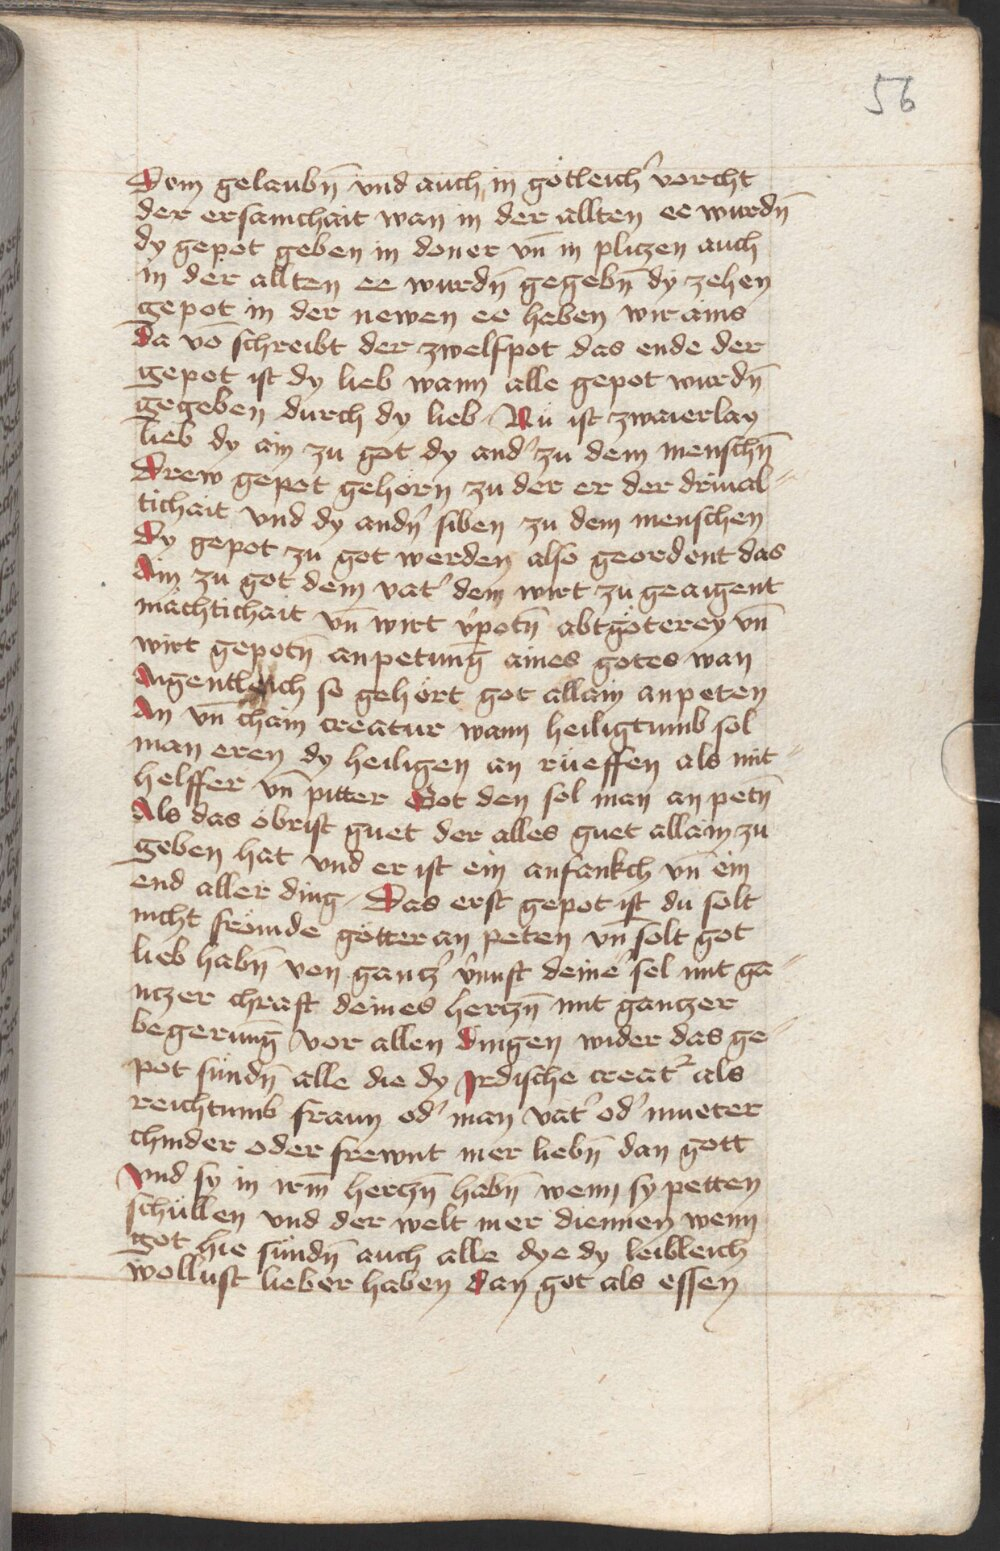 56
Dem gelaubn̄ vnd auch in götleich̛ vorcht
der ersamchait wan in der allten ee wurdn̄
dy gepot geben in doner vn̄ in pliczen auch
in der allten ee wurdn̄ gegebn̄ dy zehen
gepot in der newen ee haben wir ains
Da vō schreibt der zwelfpot das ende der
gepot ist dy lieb wann alle gepot wurdn̄
gegeben durch dy lieb Nu ist zwaierlay
lieb dy ain zu got dy and̛ zu dem menschn̄
Drew gepot gehorn zu der er der drival⸗
tichait vnd dy andn̛ siben zu dem menschen
Dy gepot zu got werden also geordent das
Ain zu got dem vat̛ dem wirt zu geaigent
mächtichait vn̄ wirt v̛potn̄ abtgöterey vn̄
wirt gepotn̄ anpetung aines gotes wan
Aigentleich so gehört got allain anpeten
An vn̄ chain creatur wann heiligtumb sol
man eren dy heiligen an rueffen als mit⸗
helffer vn̄ pitter Got den sol man an petn̄
Als das öbrist guet der alles guet allain zu
geben hat vnd er ist ein anfankch vn̄ ein
end aller ding Das erst gepot ist du solt
nicht frömde götter an peten vn̄ solt got
lieb habn̄ von gancz̛ v̛nuft deine̛ sel mit ga⸗
nczer chraft deines herczn̄ mit ganczer
begerung vor allen Dingen wider das ge⸗
pot sündn̄ alle die dy Irdische creat² als
reichtumb fraun od̛ man vat̛ od̛ mueter
chinder oder frewnt mer liebn̄ dan gott
Vnd sy in irm̄ herczn̄ habn̄ wenn sy petten
schüllen vnd der welt mer diennen wenn
got hie sündn̄ auch alle dye dy leibleich
wollust lieber haben Dan got als essen